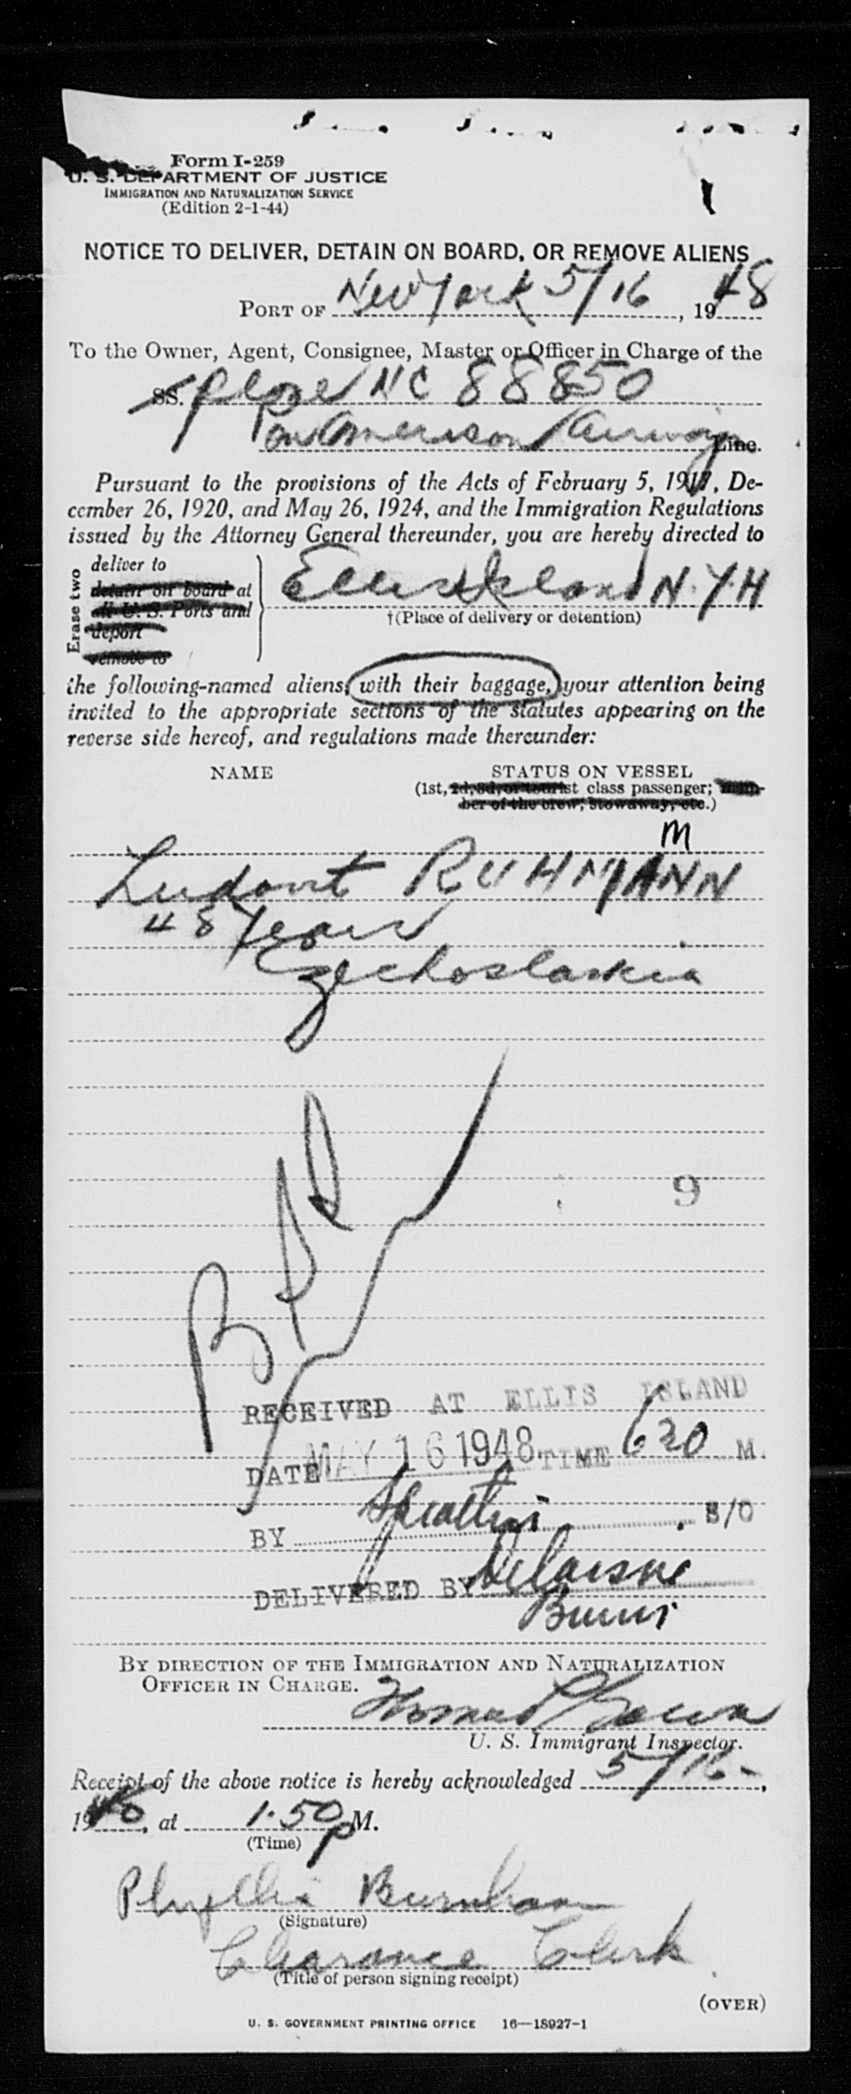 Form I-259
U. S. DEPARTMENT OF JUSTICE
IMMIGRATION AND NATURALIZATION SERVICE
(Edition 2-1-44)
NOTICE TO DELIVER, DETAIN ON BOARD, OR REMOVE ALIENS
PORT OF New York 5/16, 1948
To the Owner, Agent, Consignee, Master or Officer in Charge of the
SS. plane NC 88850
Pan American Airways Line.
Pursuant to the provisions of the Acts of February 5, 1917, De-
cember 26, 1920, and May 26, 1924, and the Immigration Regulations
issued by the Attorney General thereunder, you are hereby directed to
Erase two
deliver to
detain on board at
all U. S. Ports and
deport
remove to
Ellis Island N.Y.H
†(Place of delivery or detention)
the following-named aliens, with their baggage, your attention being
invited to the appropriate sections of the statutes appearing on the
reverse side hereof, and regulations made thereunder:
NAME STATUS ON VESSEL
(1st, 2d, 3d, or tourist class passenger; mem-
ber of the crew; stowaway, etc.)
M
Ludovit RUHMANN
48 years
Czechoslavkia
9
RECEIVED AT ELLIS ISLAND
DATE MAY 16 1948 TIME 630 M.
BY S/O
DELIVERED BY
Burns
BY DIRECTION OF THE IMMIGRATION AND NATURALIZATION
OFFICER IN CHARGE.
Thomas
U. S. Immigrant Inspector.
Receipt of the above notice is hereby acknowledged 5/16-,
1948, at 1.50 P M.
(Time)
Phyllis Burnham
(Signature)
Clearance Clerk
(Title of person signing receipt)
(OVER)
U. S. GOVERNMENT PRINTING OFFICE 16—18927-1